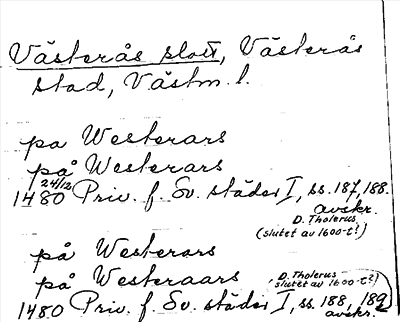 Västerås slott, Västerås
stad, Västm. l.
pa Westerars
på Westerars
24/12
1480 Priv. f. Sv. städer I, ss. 187, 188.
avskr.
D. Tholerus
(slutet av 1600-t?)
på Westerars
på Westeraars
D. Tholerus
(slutet av 1600-t?)
1480 Priv. f. Sv. städer I, ss. 188, 189
avskr.